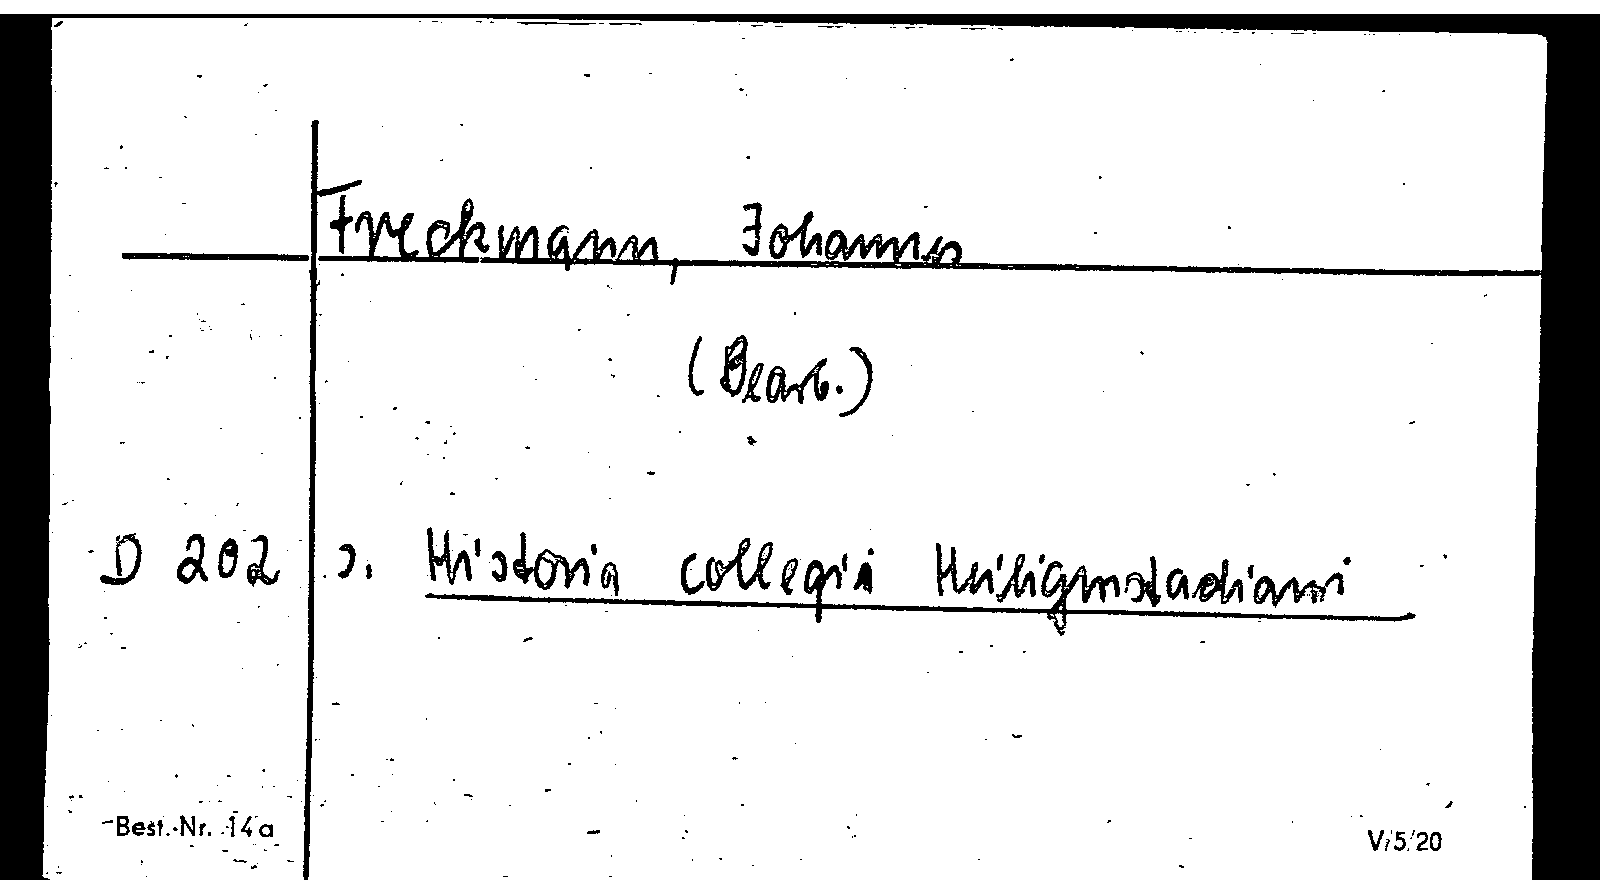 Freckmann, Johannes
(Bearb.)
D 202 s. Historia collegii Heiligenstadiani
Best.-Nr. 14a V/5/20